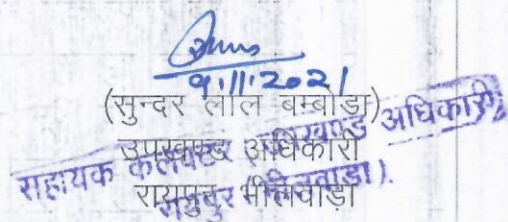 9.11.2021
(सुन्दर लाल बम्बोडा)
उपखण्ड अधिकारी
रायपुर भीलवाड़ा
सहायक कलेक्टर उपखण्ड अधिकारी
रायपुर (भीलवाड़ा).